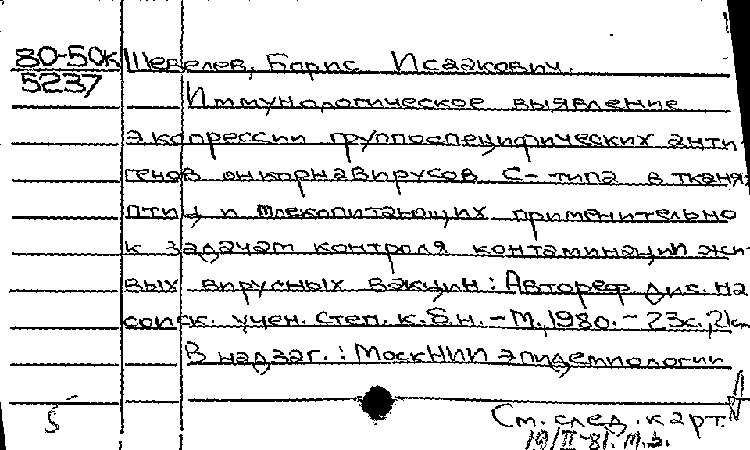 80-50к Шевелев, Борис Исаакович.
5237
Иммунологическое выявление
экспрессии группоспецифических анти
генов онкорнавирусов С-типа в тканях
птиц и млекопитающих применительно
к задачам контроля контаминации жи-
вых вирусных вакцин: Автореф. дис. на
соиск. учен. степ. к.б.н. - М., 1980. - 23с., 21см
В надзаг.: Моск НИИ эпидемиологии
См. след. карт.
19/II-81.